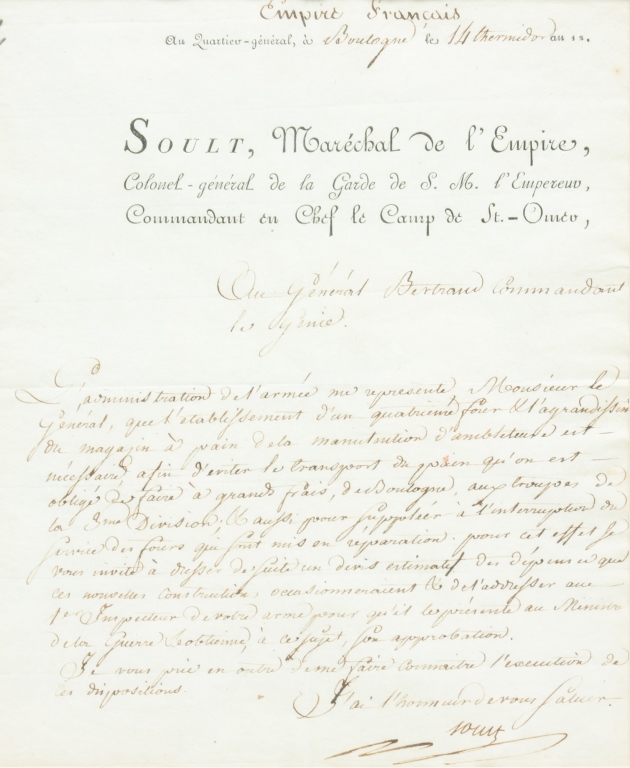 Empire Français
Au Quartier-général, à Boulogne le 14 thermidor an 12.
SOULT, Maréchal de l'Empire,
Colonel-général de la Garde de S. M. l'Empereur,
Commandant en Chef le Camp de St.-Omer,
Au Général Bertrand Commandant
le Génie.
L'administration de l'armée me représente, Monsieur le
Général, que l'établissement d'un quatrième four & l'agrandissem
du magazin à pain dela manutention d'ambleteuse est
nécessaire, afin d'eviter le transport du pain qu'on est
obligé de faire à grands frais, de Boulogne, aux troupes de
la 3me Division; & aussi pour suppléer à l'interruption du
service des fours qui sont mis en réparation. pour cet effet je
vous invite à dresser desuite un devis estimatif des dépenses que
ces nouvelles constructions occasionneraient & de l'addresser au
1er Inspecteur de votre arme pour qu'il le présente au Ministre
dela Guerre & obtienne, à ce sujet, son approbation.
Je vous prie en outre de me faire connaitre l'execution de
ces dispositions.
J'ai l'honneur de vous saluer.
Soult